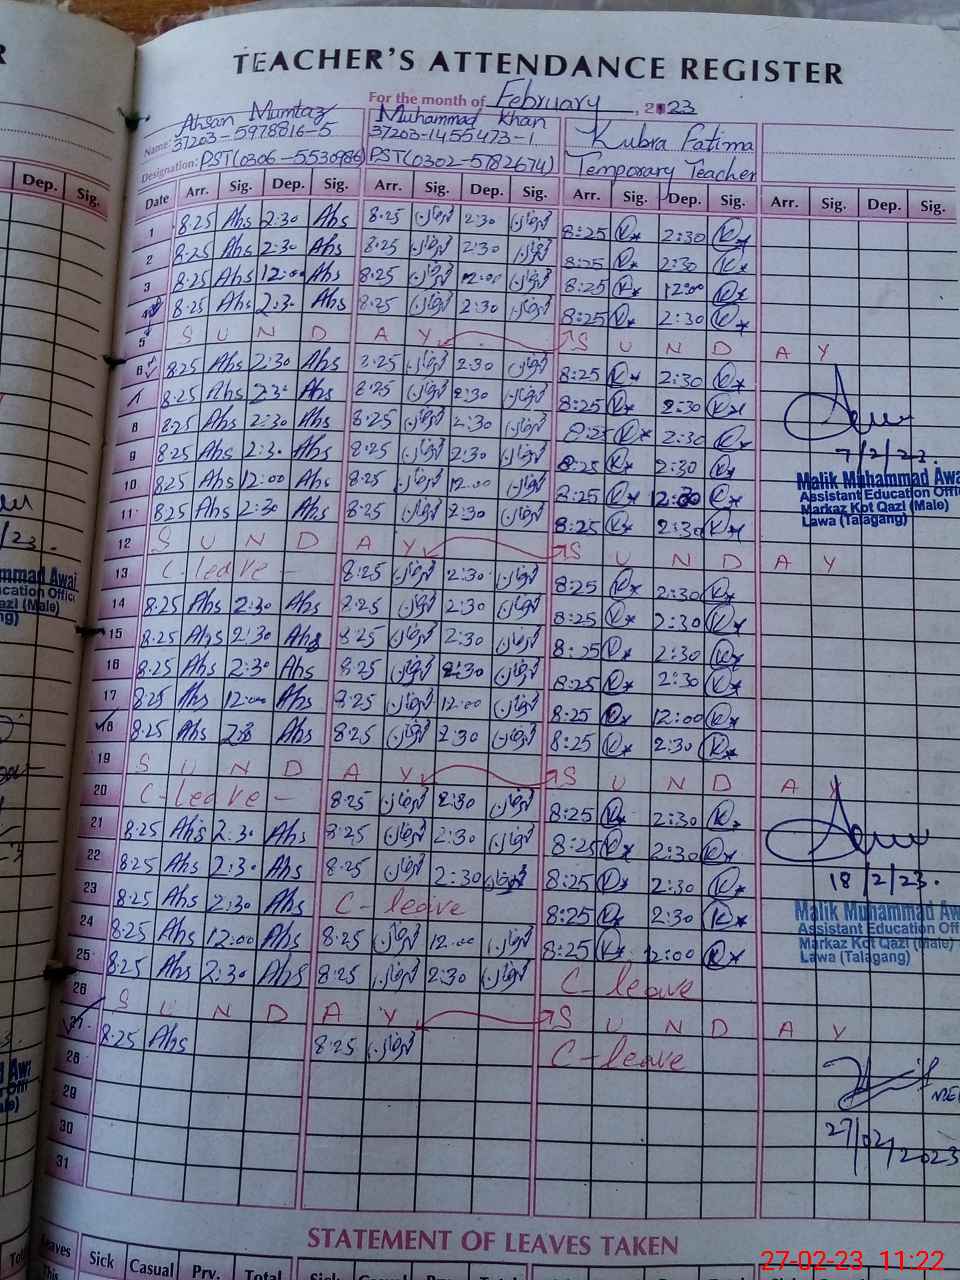 TEACHER'S ATTENDANCE REGISTER
For the month of February, 2023
Name: Ahsan Mumtaz Muhammad Khan Kubra Fatima
37203-5978816-5 37203-1455473-1
Designation: PST(0306-5530986) PST(0302-5782674) Temporary Teacher
Dep. Sig. Date Arr. Sig. Dep. Sig. Arr. Sig. Dep. Sig. Arr. Sig. Dep. Sig. Arr. Sig. Dep. Sig.
1 8.25 Ahs 2:30 Ahs 8.25 2:30 8:25 K 2:30 K
2 8.25 Ahs 2:30 Ahs 8.25 2:30 8:25 K 2:30 K
3 8.25 Ahs 12:00 Ahs 8.25 12:00 8:25 K 12:00 K
4 8.25 Ahs 2:30 Ahs 8.25 2:30 8:25 K 2:30 K
5 S U N D A Y S U N D A Y
6 8.25 Ahs 2:30 Ahs 8.25 2:30 8:25 K 2:30 K
7 8.25 Ahs 2:30 Ahs 8.25 2:30 8:25 K 2:30 K
8 8.25 Ahs 2:30 Ahs 8.25 2:30 8:25 K 2:30 K
7/2/23.
9 8.25 Ahs 2:30 Ahs 8.25 2:30 8:25 K 2:30 K
Malik Muhammad Awa
10 8.25 Ahs 12:00 Ahs 8.25 12.00 8:25 K 12:00 K
Assistant Education Offi
Markaz Kot Qazi (Male)
11 8.25 Ahs 2:30 Ahs 8.25 2:30 8:25 K 2:30 K
Lawa (Talagang)
12 S U N D A Y S U N D A Y
13 C-leave- 8.25 2:30 8:25 K 2:30 K
14 8.25 Ahs 2:30 Ahs 8.25 2:30 8:25 K 2:30 K
15 8.25 Ahs 2:30 Ahs 8.25 2:30 8:25 K 2:30 K
16 8.25 Ahs 2:30 Ahs 8.25 2:30 8:25 K 2:30 K
17 8.25 Ahs 12:00 Ahs 8.25 12:00 8:25 K 12:00 K
18 8.25 Ahs 2:30 Ahs 8.25 2:30 8:25 K 2:30 K
19 S U N D A Y S U N D A Y
20 C-leave- 8.25 2:30 8:25 K 2:30 K
21 8.25 Ahs 2:30 Ahs 8.25 2:30 8:25 K 2:30 K
22 8.25 Ahs 2:30 Ahs 8.25 2:30 8:25 K 2:30 K
18/2/23.
23 8.25 Ahs 2:30 Ahs C-leave 8:25 K 2:30 K
Malik Muhammad Aw
Assistant Education Off
24 8.25 Ahs 12:00 Ahs 8.25 12.00 8:25 K 12:00 K
Markaz Kot Qazi (Male)
Lawa (Talagang)
25 8.25 Ahs 2:30 Ahs 8.25 2:30 C-leave
26 S U N D A Y S U N D A Y
27 8.25 Ahs 8.25 C-leave
28
29
30
31
27/02/2023
STATEMENT OF LEAVES TAKEN
Leaves Sick Casual Prv. Total
27-02-23 11:22